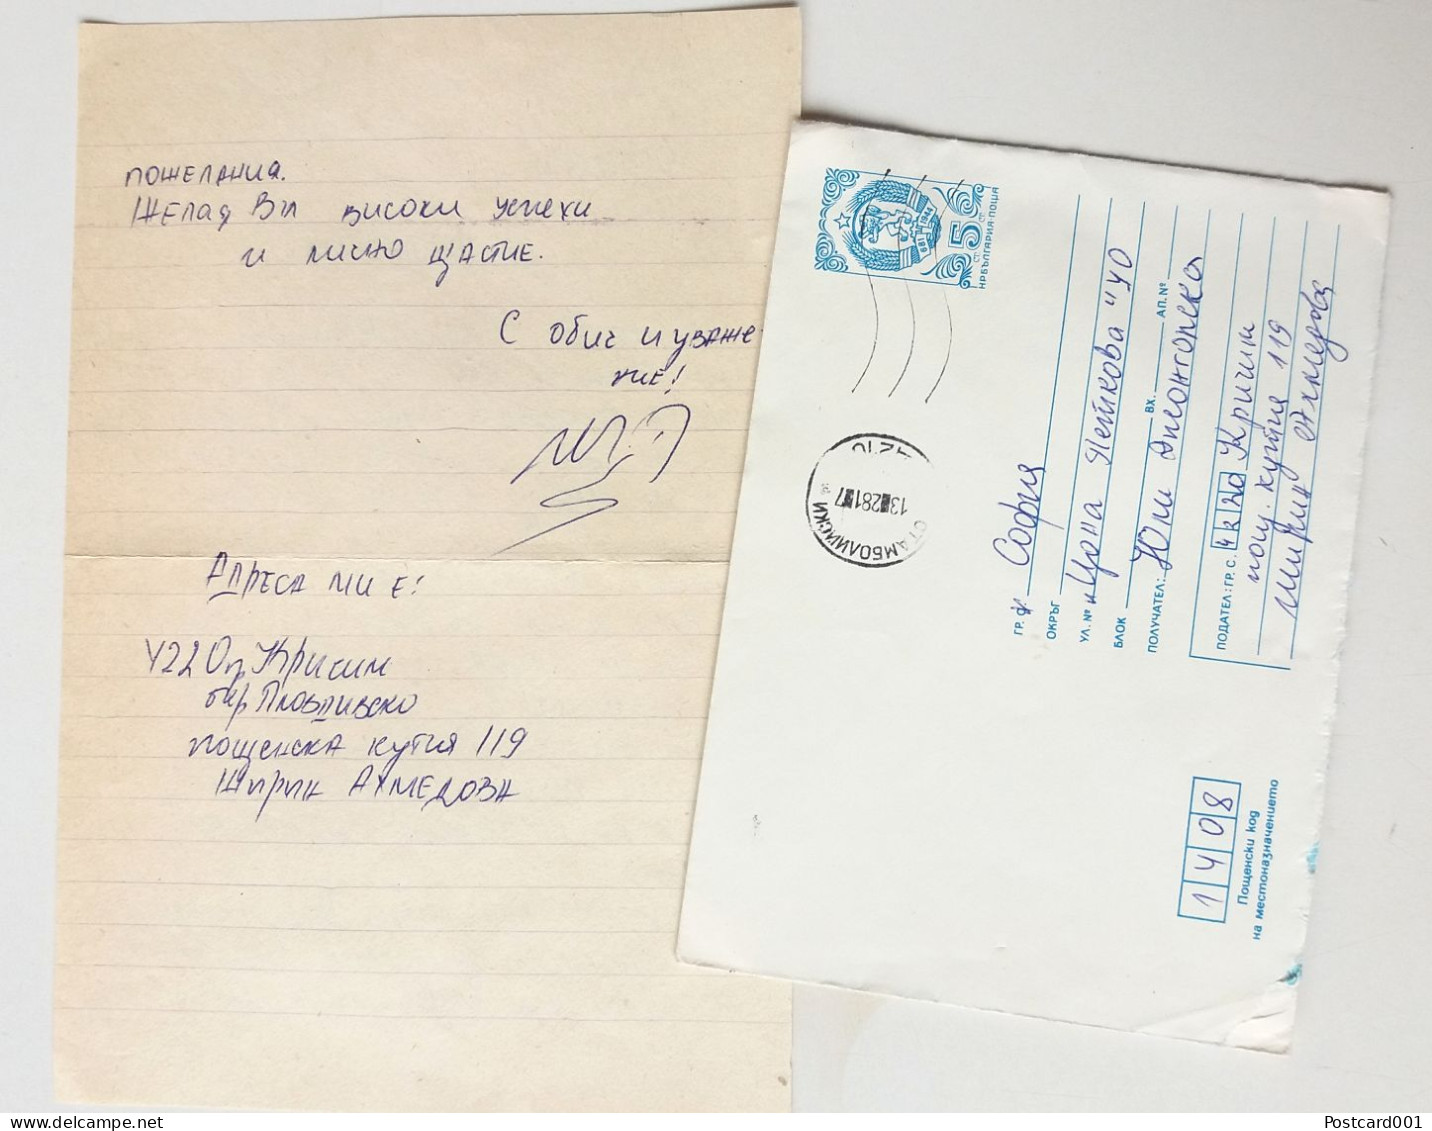 ПОЖЕЛАНИЯ.
ЖЕЛАЯ ВИ ВИСОКИ УСПЕХИ
И ЛИЧНО ЩАСТИЕ.
С ОБИЧ И УВАЖЕ-
НИЕ!
АДРЕСА МИ Е:
4220 гр. Кричим
окр. Пловдивско
пощенска кутия 119
Ширин АХМЕДОВА
5 СТ.
НР БЪЛГАРИЯ·ПОЩА
681 1944
СТАМБОЛИЙСКИ
13 2 81 17
ГР. София
ОКРЪГ
УЛ. № "Цона Пейкова" 40
БЛОК ВХ. АП. №
ПОЛУЧАТЕЛ: Юли Джонгорска
ПОДАТЕЛ: ГР. С. 4220 Кричим
пощ. кутия 119
Ширин Ахмедова
1408
Пощенски код
на местоназначението
Postcard001